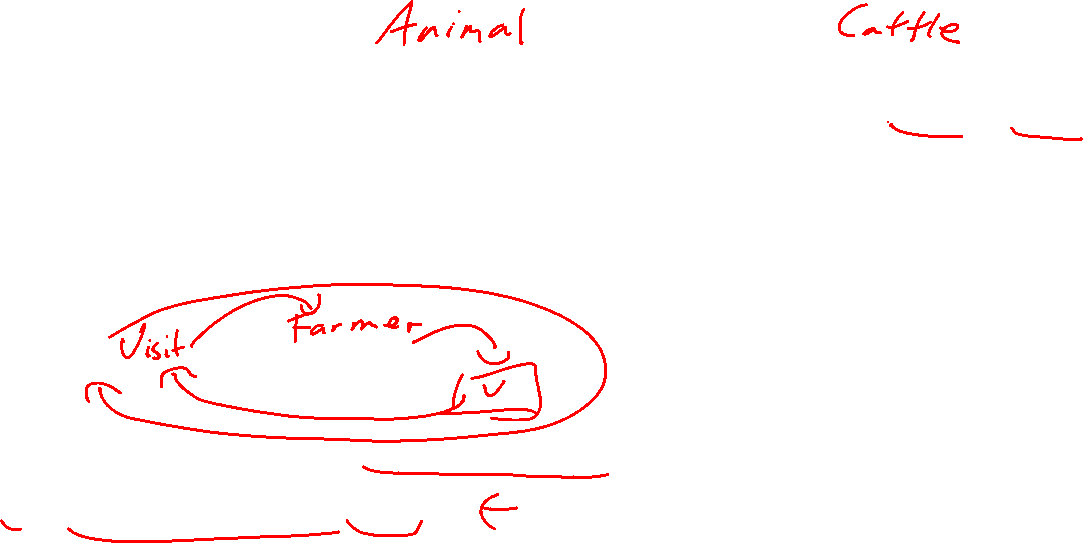 Animal Cattle
Visit Farmer
V